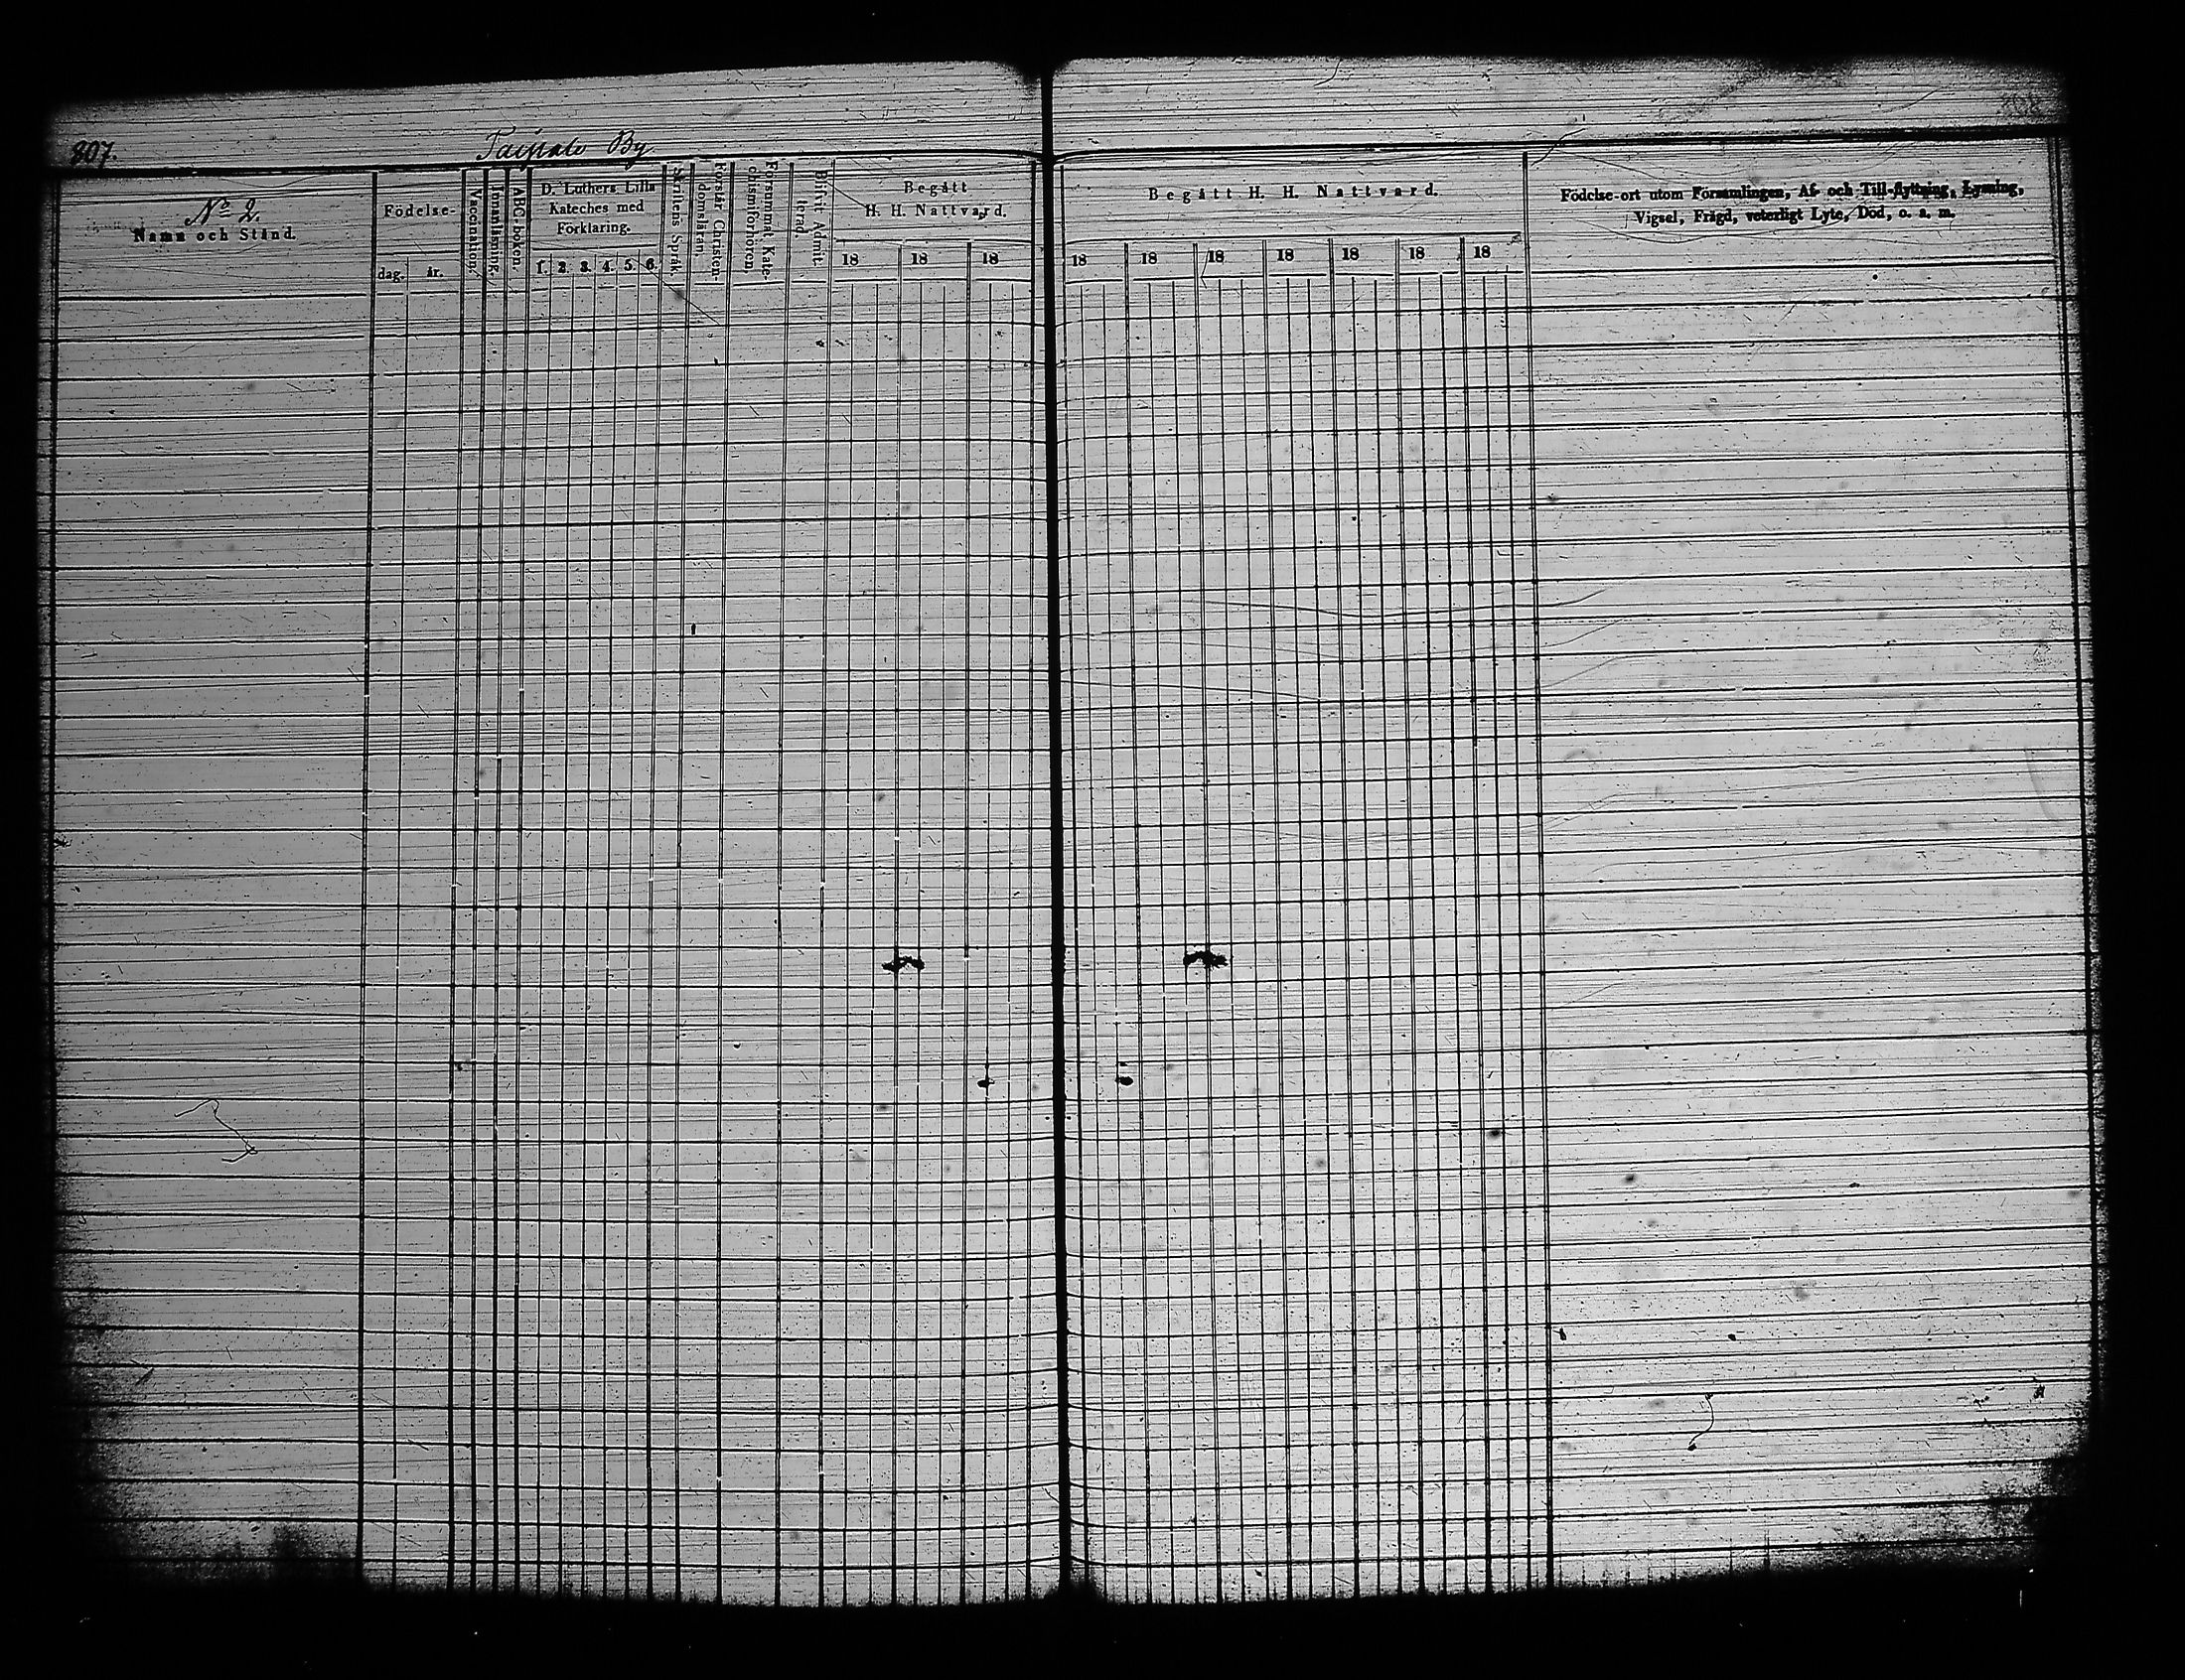 807.
Taipale By
808
Nº 2.
Namn och Stånd.
Födelse-
dag.
år.
Vaccination.
Innanläsning.
ABC-boken.
D. Luthers Lilla
Kateches med
Förklaring.
1. 2. 3. 4. 5. 6.
Skriftens Språk.
Förstår Christen-
domsläran.
Försummat Kate-
chismiförhören.
Blifvit Admit-
terad.
Begått
H. H. Nattvard.
18 18 18
Begått H. H. Nattvard.
18 18 18 18 18 18 18
Födelse-ort utom Församlingen, Af- och Till-flyttning, Lysning,
Vigsel, Frägd, veterligt Lyte, Död, o. s. m.